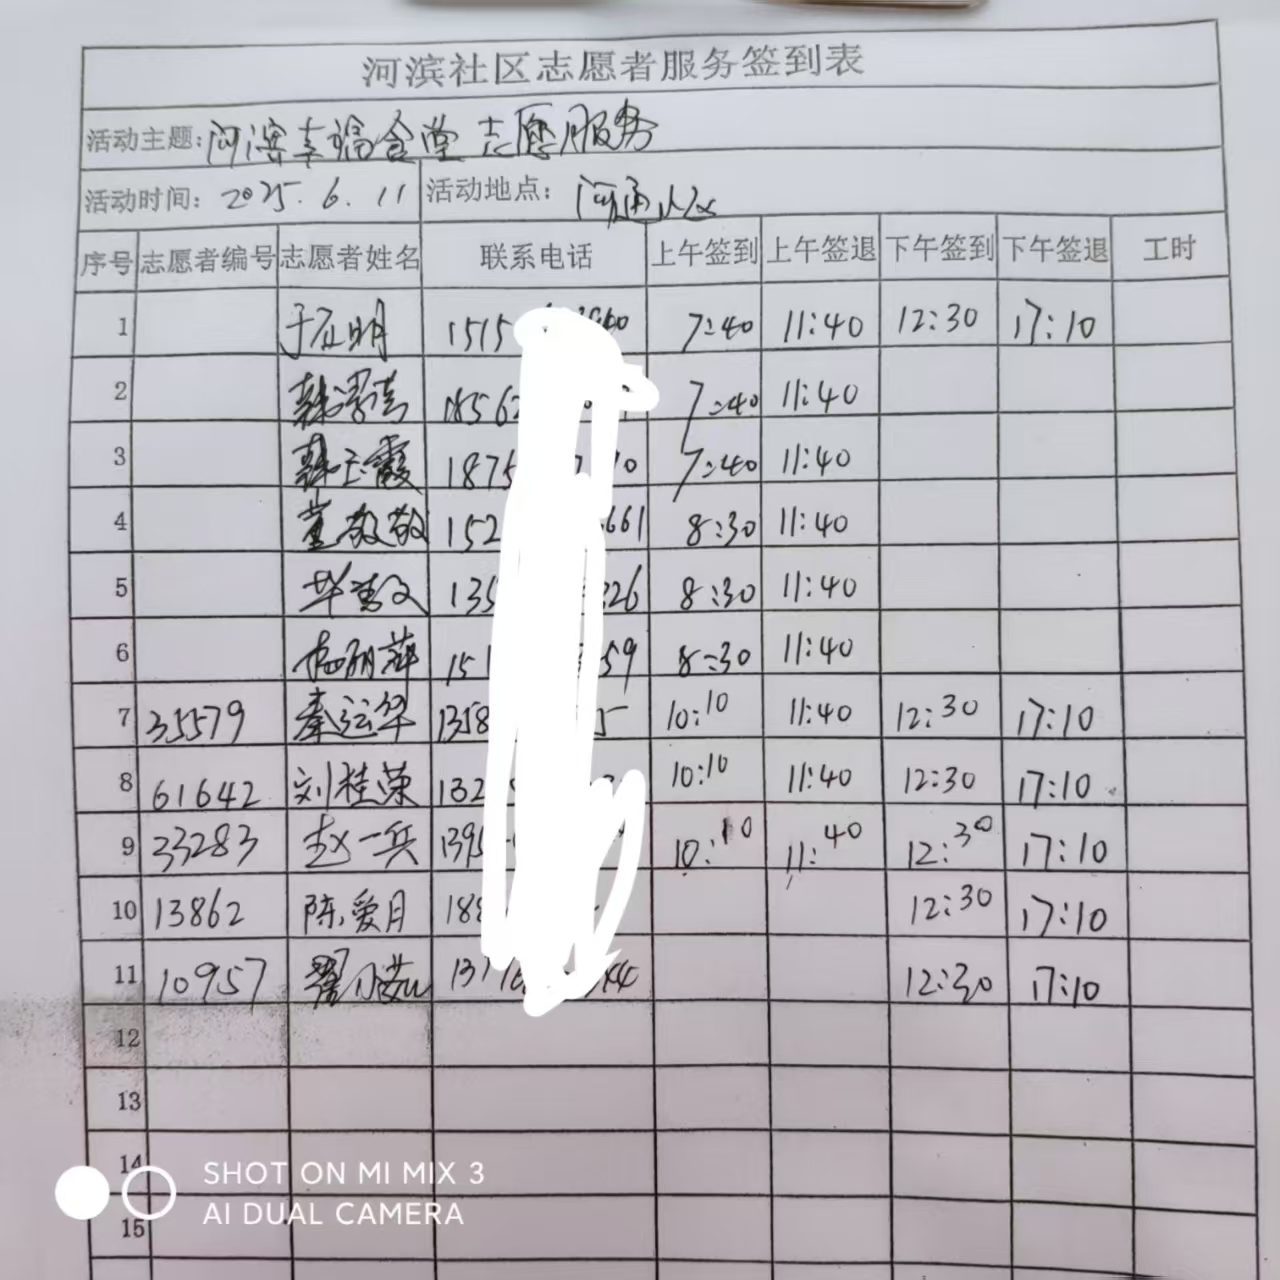 河滨社区志愿者服务签到表
活动主题: 河滨幸福食堂 志愿服务
活动时间: 2025.6.11 活动地点: 河通小区
序号 志愿者编号 志愿者姓名 联系电话 上午签到 上午签退 下午签到 下午签退 工时
1 明 1515 7:40 11:40 12:30 17:10
2 韩 1856 7:40 11:40
3 韩玉霞 1875 10 7:40 11:40
4 董敬敬 152 661 8:30 11:40
5 毕 文 135 326 8:30 11:40
6 丽萍 151 59 8:30 11:40
7 35579 秦运华 1358 5 10:10 11:40 12:30 17:10
8 61642 刘桂荣 132 10:10 11:40 12:30 17:10
9 33283 赵一兵 1395 10:10 11:40 12:30 17:10
10 13862 陈爱月 188 12:30 17:10
11 10957 翟小茹 137 44 12:30 17:10
12
13
14
15
SHOT ON MI MIX 3
AI DUAL CAMERA